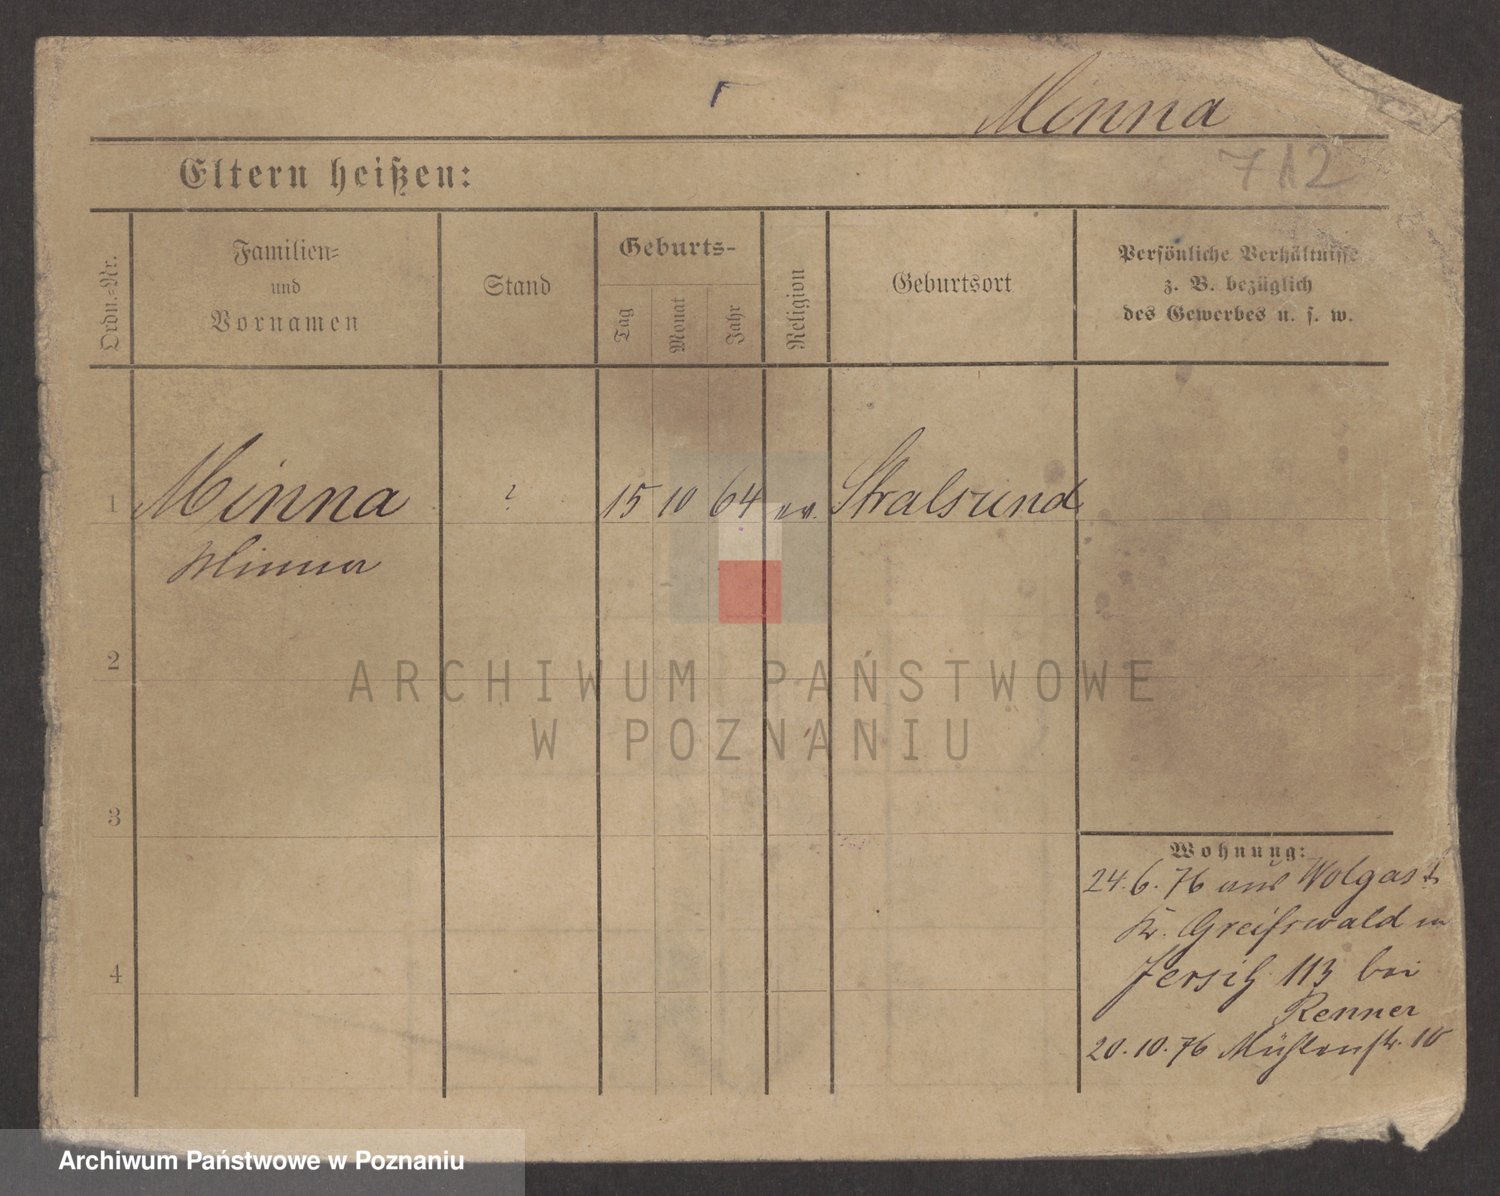 Minna
712
Eltern heißen:
Ordn.-Nr.
Familien-
und
Vornamen
Stand
Geburts-
Tag
Monat
Jahr
Religion
Geburtsort
Persönliche Verhältnisse
z. B. bezüglich
des Gewerbes u. s. w.
1 Minna ? 15 10 64 ev. Stralsund
Minna
2
3
4
Wohnung:
24.6.76 aus Wolgast
Kr. Greifswald in
Jersitz 113 bei
Renner
20.10.76 Mühlenstr. 10
ARCHIWUM PAŃSTWOWE
W POZNANIU
Archiwum Państwowe w Poznaniu